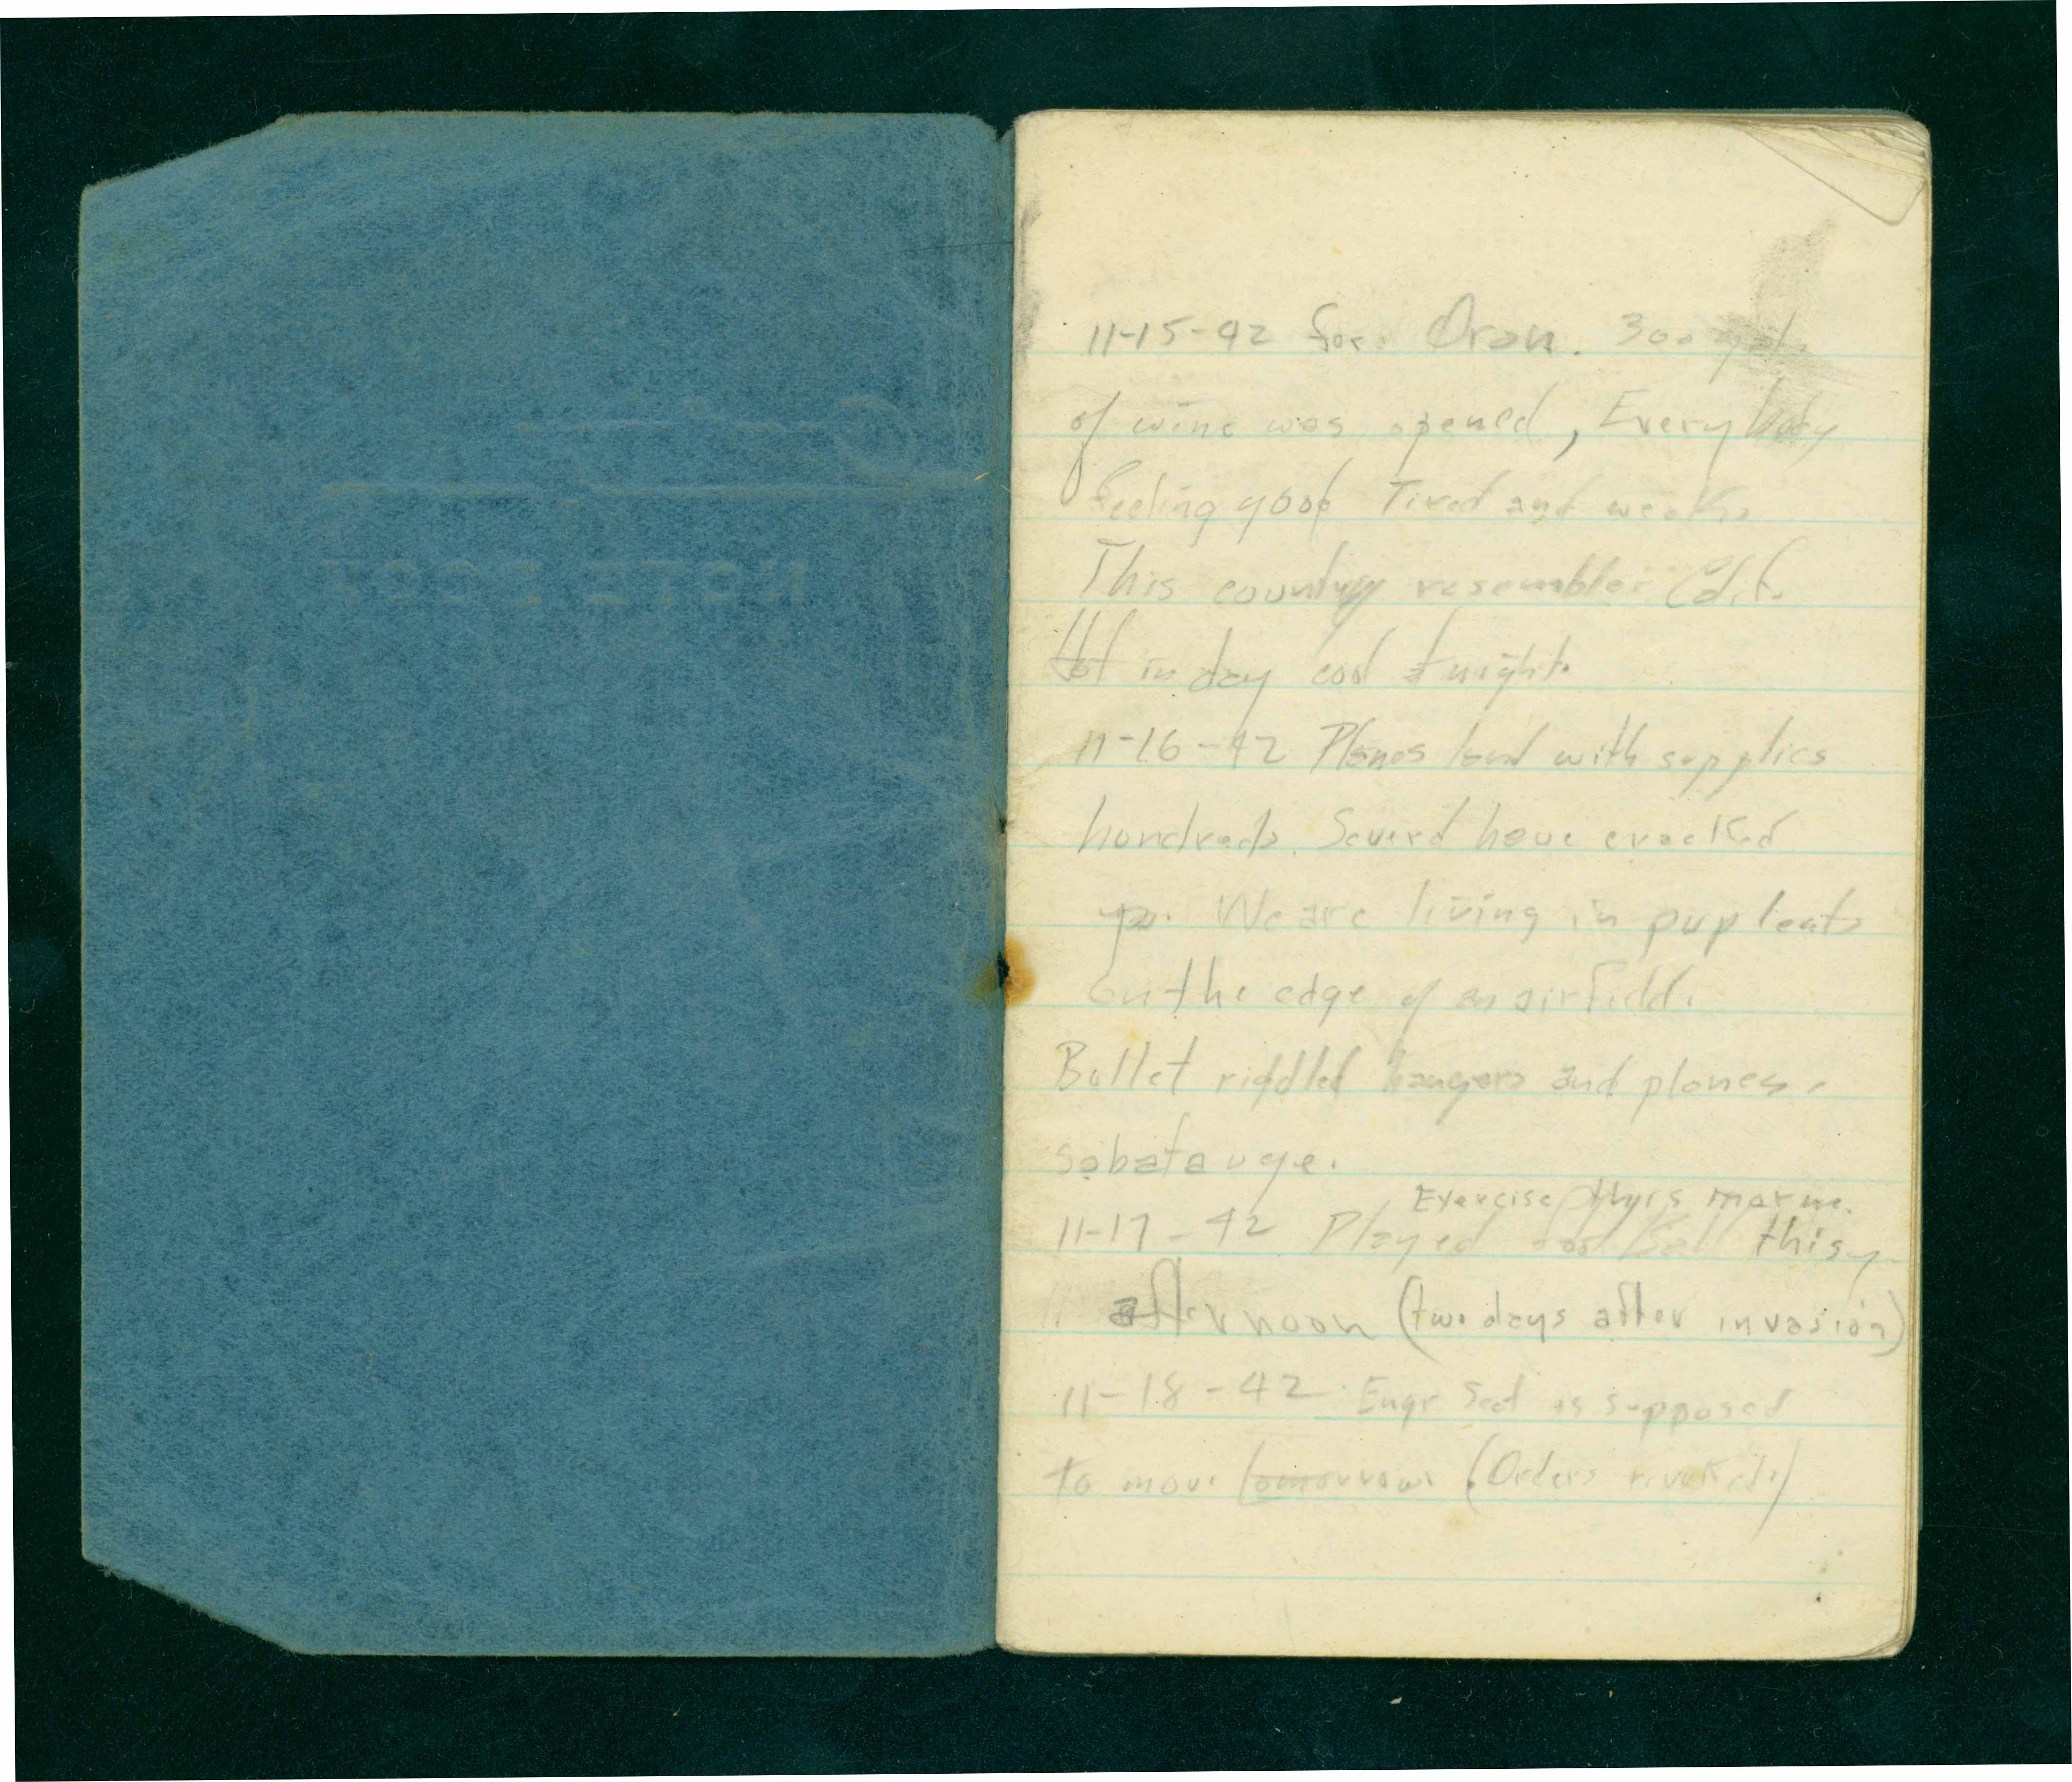 NOTE BOOK
11-15-42 for. Oran. 300 gal.
of wine was opened, Everybody
feeling good Tired and weak.
This country resembles Calif.
Hot in day cool at night.
11-16-42 Planes land with supplies
hondreds. Several have cracked
up. We are living in pup tents
on the edge of an airfield.
Bullet riddled hangers and planes.
sabatauge.
Exercise this morne.
11-17-42 Played ball this
afternoon (two days after invasion)
11-18-42 Engr Sect is supposed
to move tomorrow. (Orders revoked.)